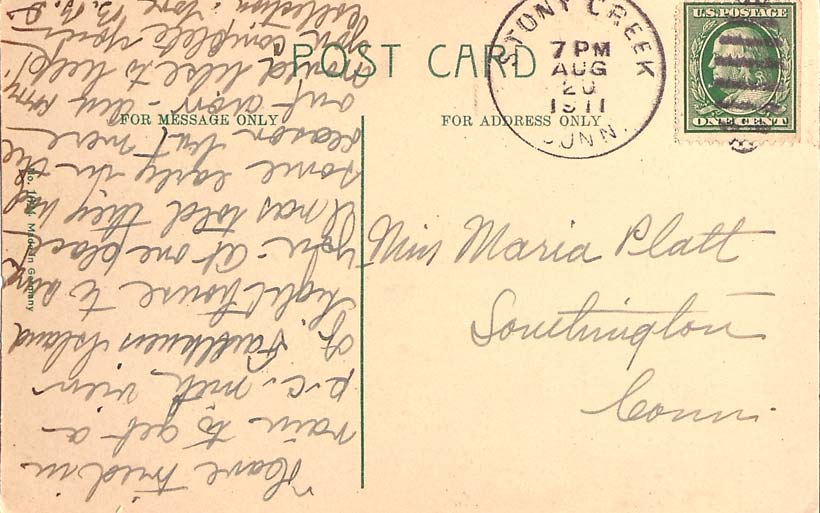 POST CARD
FOR MESSAGE ONLY
FOR ADDRESS ONLY
STONY CREEK
7 PM
AUG
20
1911
CONN.
U.S. POSTAGE
ONE CENT
Made in Germany
Miss Maria Platt
Southington
Conn.
Have tried in
vain to get a
p.c. with view
of Faulkners Island
light house to
you - At one place
I was told they had
some early in the
season but were
out now - Am
would like to help
you complete your
collection.